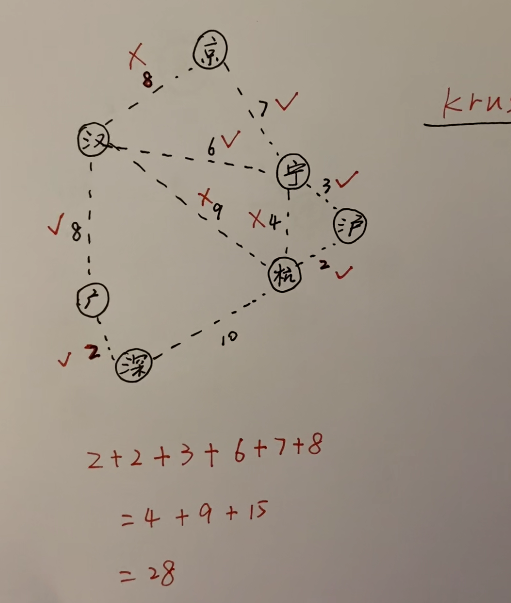 京
× 8
7 ✓
krus
汉
6 ✓
宁
3 ✓
× 9
× 4
沪
✓ 8
2 ✓
杭
广
10
✓ 2
深
2+2+3+6+7+8
=4+9+15
=28